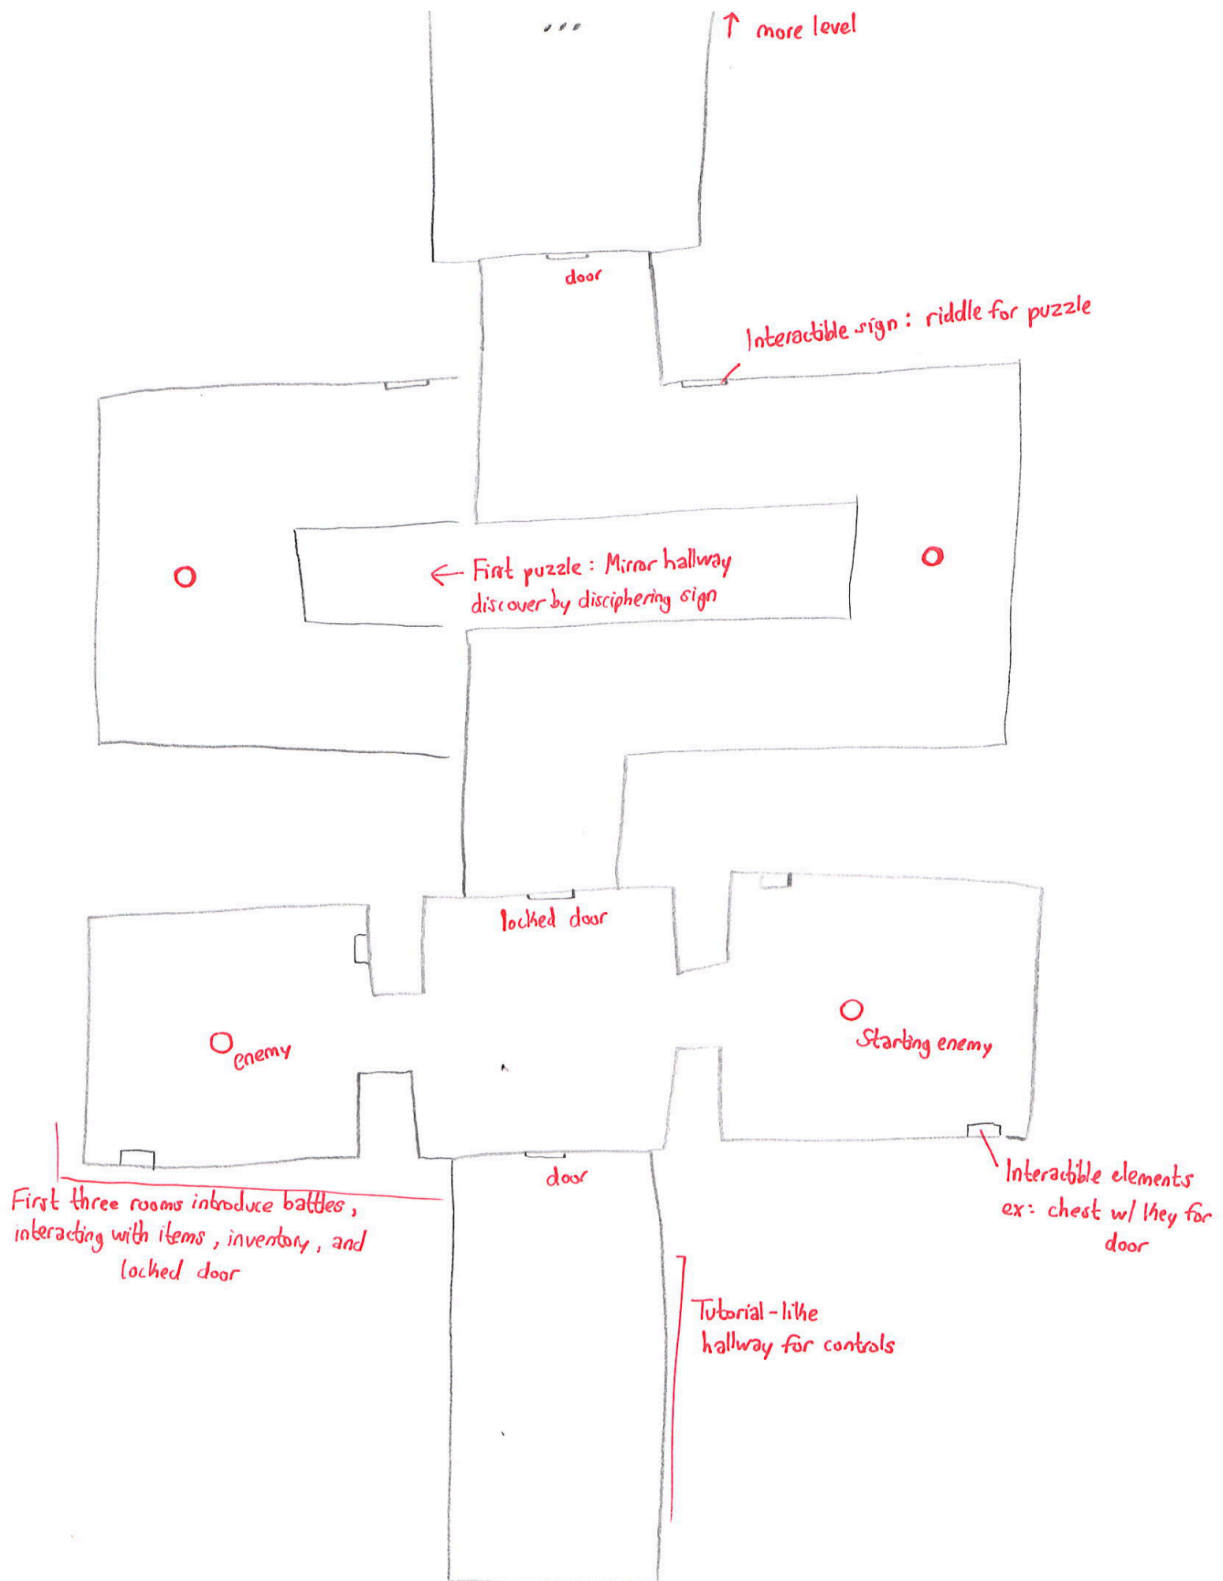 ↑ more level
door
Interactible sign: riddle for puzzle
← First puzzle: Mirror hallway
discover by disciphering sign
locked door
enemy
Starting enemy
door
First three rooms introduce battles,
interacting with items, inventory, and
locked door
Interactible elements
ex: chest w/ key for
door
Tutorial-like
hallway for controls